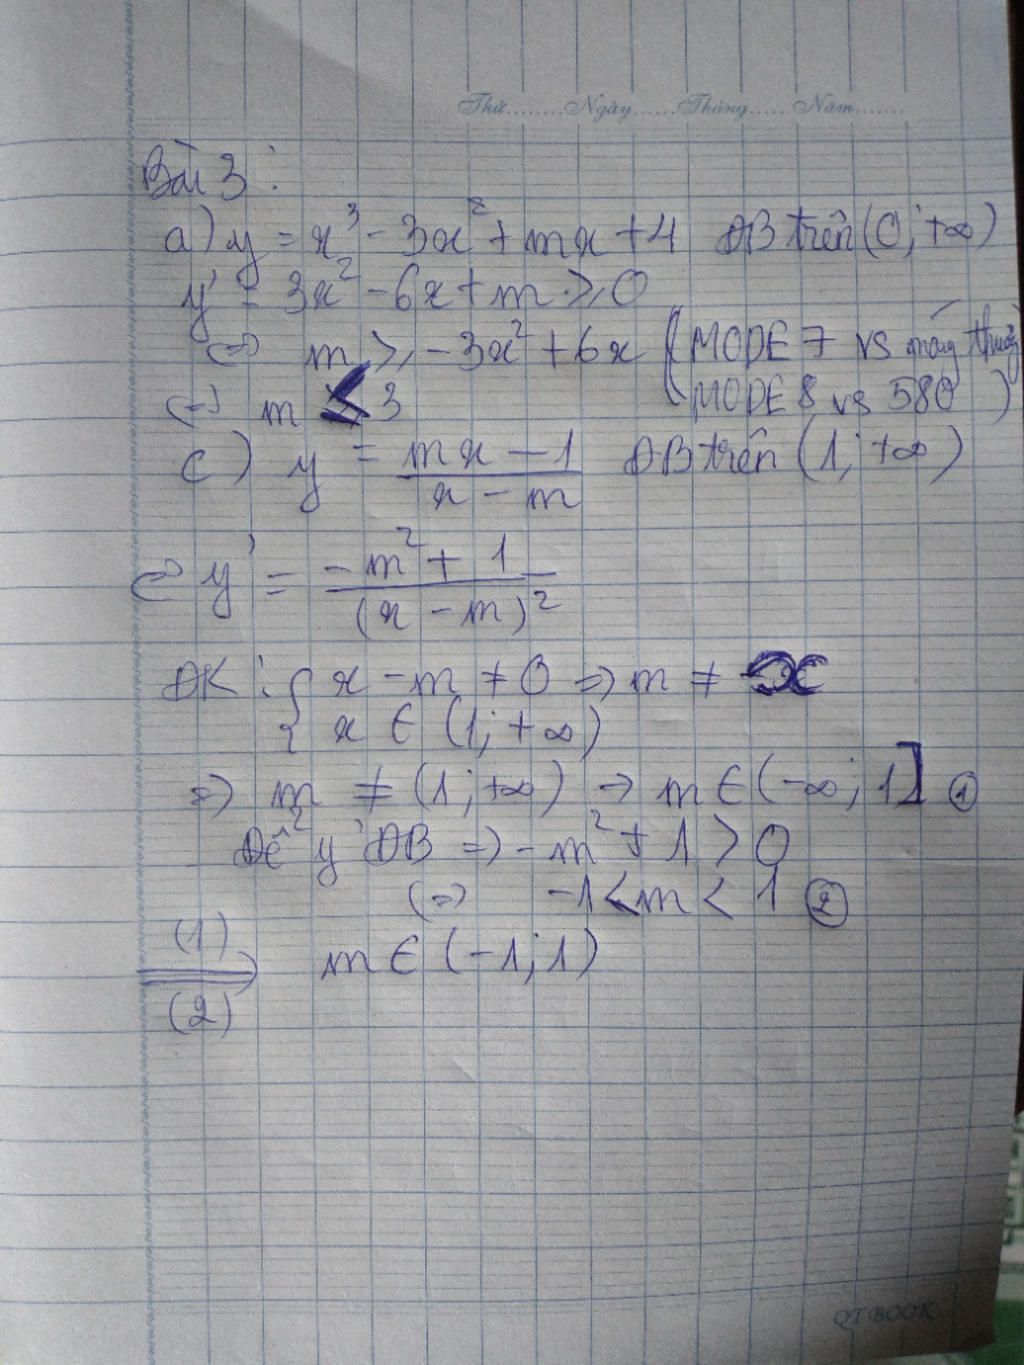 Thứ........Ngày......Tháng......Năm.......
Bài 3 :
a) y = x³ - 3x² + mx + 4 ĐB trên (0; +∞)
y' = 3x² - 6x + m ≥ 0
<=> m ≥ -3x² + 6x (MODE 7 vs máy thường
<=> m ≤ 3 (MODE 8 vs 580)
c) y = (mx - 1)/(x - m) ĐB trên (1; +∞)
<=> y' = (-m² + 1)/(x - m)²
ĐK : { x - m ≠ 0 => m ≠ x
{ x ∈ (1; +∞)
=> m ≠ (1; +∞) -> m ∈ (-∞; 1] ①
Để y' ĐB => -m² + 1 > 0
<=> -1 < m < 1 ②
(1)
(2) => m ∈ (-1; 1)
QT BOOK